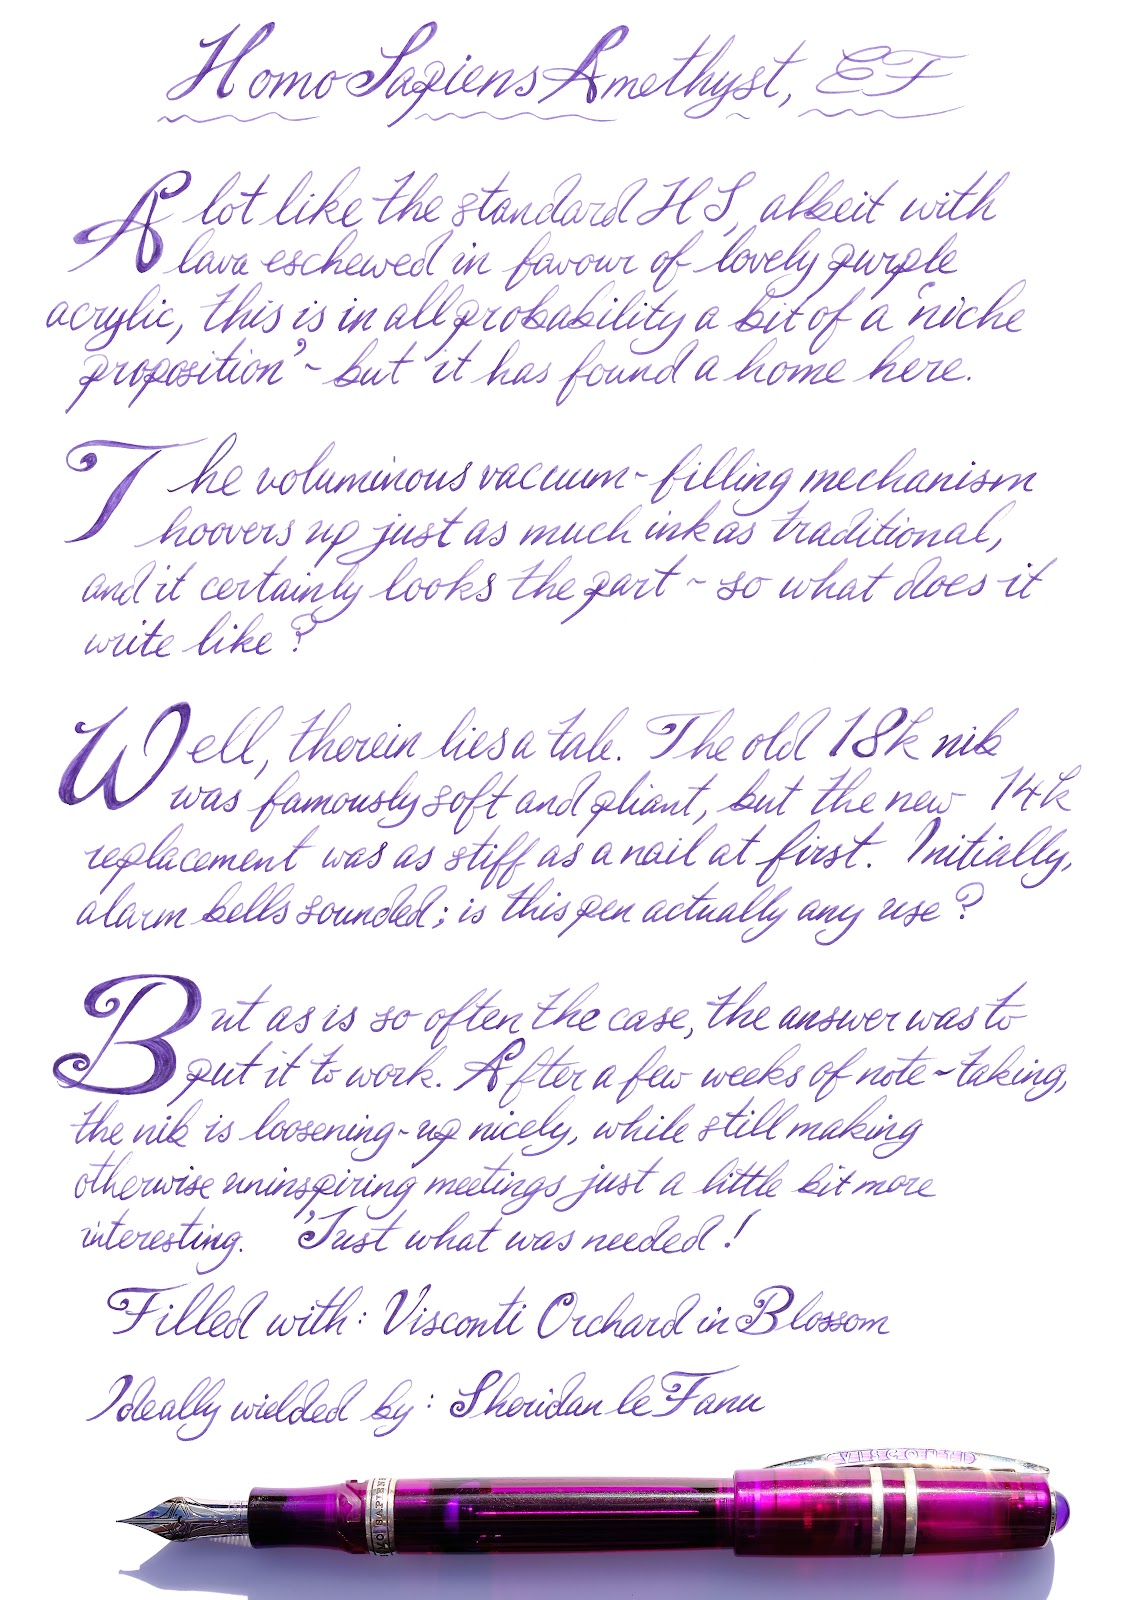 Homo Sapiens Amethyst, EF
A lot like the standard HS, albeit with
lava eschewed in favour of lovely purple
acrylic, this is in all probability a bit of a 'niche
proposition' ~ but it has found a home here.
The voluminous vacuum-filling mechanism
hoovers up just as much ink as traditional,
and it certainly looks the part ~ so what does it
write like?
Well, therein lies a tale. The old 18k nib
was famously soft and pliant, but the new 14k
replacement was as stiff as a nail at first. Initially,
alarm bells sounded; is this pen actually any use?
But as is so often the case, the answer was to
put it to work. After a few weeks of note~taking,
the nib is loosening-up nicely, while still making
otherwise uninspiring meetings just a little bit more
interesting. 'Just what was needed!
Filled with: Visconti Orchard in Blossom
Ideally wielded by: Sheridan le Fanu
VISCONTI
SAPIENS